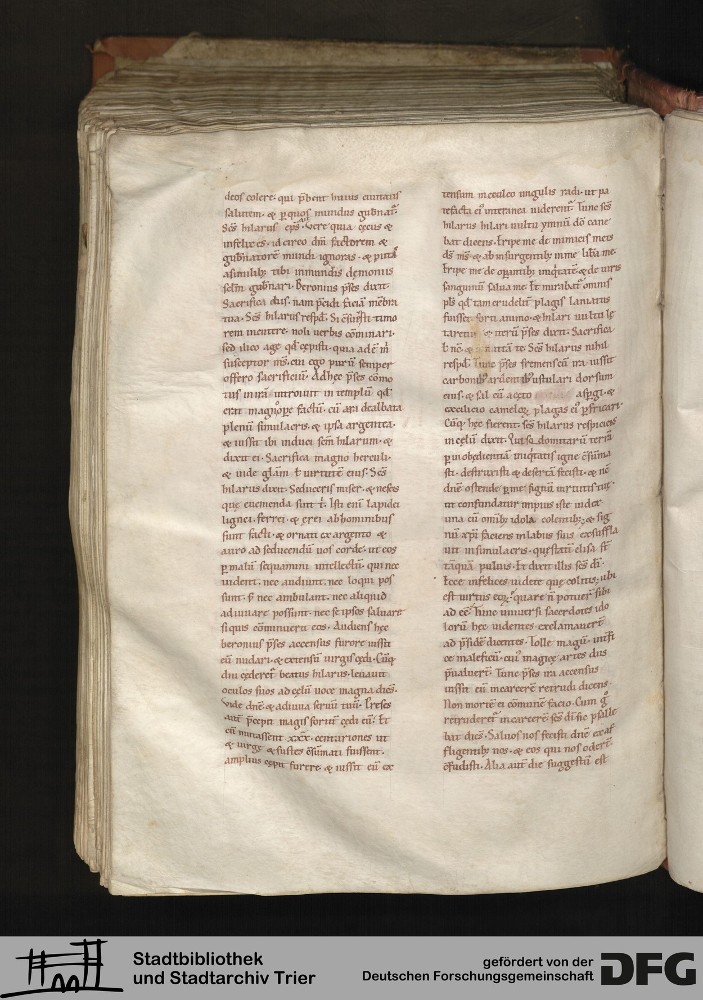 deos colere. qui p̄bent huius ciuitatis
salutem. & p̱ quos mundus gub̄nat̄.
Sc̄s hilarus ep̄s. Vere quia cecus &
infelix es. idcirco dn̄m factorem &
gub̄natorē mundi ignoras. & putas
a similib; tibi inmundis demoniis
sc̄lm̄ gub̄nari. Beronius p̄ses dixit.
Sacrifica diis. nam p̄cidi faciā mēbra
tua. Sc̄s hilarus resp̄d. Si timo
rem incutere. noli uerbis cōminari.
sed ilico age qd̄ cepisti. quia adē m̄
susceptor m̄s. cui ego purū semper
offero sacrificiū. Ad hec p̄ses cōmo
tus in irā. introiuit in templū qd̄
erat magno op̱e factū. cū ari dealbata
plenū simulacris. & ipsa argentea.
& iussit ibi induci sc̄m hilarum. &
dixit ei. Sacrifica magno herculi.
& uide gl̄am ł uirtutē eius. Sc̄s
hilarus dixit. Seduceris miser. & nescis
que euemenda sunt ł. Isti enī lapidei
lignei. ferrei. & erei ab hominibus
sunt facti. & ornati ex argento &
auro ad seducendū uos corde. ut eos
p̱ malū sequamini intellectū. qui nec
uident. nec audiunt. nec loqui pos
sunt. s̄ nec ambulant. nec aliquid
adiuuare possunt. nec se ipsos saluare
si quis cōminuerit eos. Audiens hec
beronius p̄ses accensus furore iussit
eū nudari. & extensū uirgis cedi. Cūq̄
diu cederet̄ beatus hilarus. leuauit
oculos suos ad celū uoce magna dicēs.
Vide dn̄e & adiuua seruū tuū. P̄ses
aut̄ p̄cepit magis fortit̄ cedi eū. Et
cū mutassent .xxx. centuriones ut
& uirge & fustes cōsumati fuissent.
amplius cepit furere. & iussit eū ex
tensum in eculeo ungulis radi. ut pa
tefacta ei᷒ interanea uiderent̄. Tunc sc̄s
hilarus hilari uultu ymnū dō cane
bat dicens. Eripe me de inimicis meis
d̄s m̄s. & ab insurgentib; in me libera me.
Eripe me de operantib; iniquitatē. & de uiris
sanguinū salua me. Et mirabat̄ omnis
pl̄s qd̄ tam crudelit̄ plagis laniatus
fuisset. forti animo. & hilari uultu le
taretur. & iterū p̄ses dixit. Sacrifica
Sc̄s hilarus nihil
resp̄d. Tunc p̄ses fremens cū ira iussit
carbonib; ardentib; ustulari dorsum
eius. & sal cū aceto aspgi. &
cecilicio camelo⁊ plagas ei᷒ p̱fricari.
Cūq̄ hec fierent. sc̄s hilarus respiciens
in celū dixit. Qui sa domitarū terrā
p̱ inobedientiā iniquitatis igne cōsūma
sti. destruxisti & desertā fecisti. & nc̄
dn̄e ostende p̱ me signū uirtutis tue.
ut confundatur impius iste iudex
una cū omib; idola colentib;. & sig
nū xp̄i faciens in labiis suis exsuffla
uit in simulacris. que statī elisa st̄
tāquā puluis. Et dixit illis sc̄s dī.
Ecce infelices uidete que colitis. ubi
est uirtus eo⁊. quare n̄ potuer̄ sibi
ad eē. Tunc uniuersi sacerdotes ido
lorū hec uidentes exclamauer̄
ad p̄sidē dicentes. Tolle magū. intfi
ce maleficū. cui᷒ magice artes diis
p̄ualuer̄. Tunc p̄ses ira accensus
iussit eū in carcerē retrudi dicens.
Non mortē ei cōmunē facio. Cum g̊
retruderet̄ in carcerē. sc̄s dī sic psalle
bat dicēs. Saluos nos fecisti dn̄e ex af
fligentib; nos. & eos qui nos oder̄
cōfudisti. Alia aut̄ die suggestū est
Stadtbibliothek
und Stadtarchiv Trier
gefördert von der
Deutschen Forschungsgemeinschaft
DFG